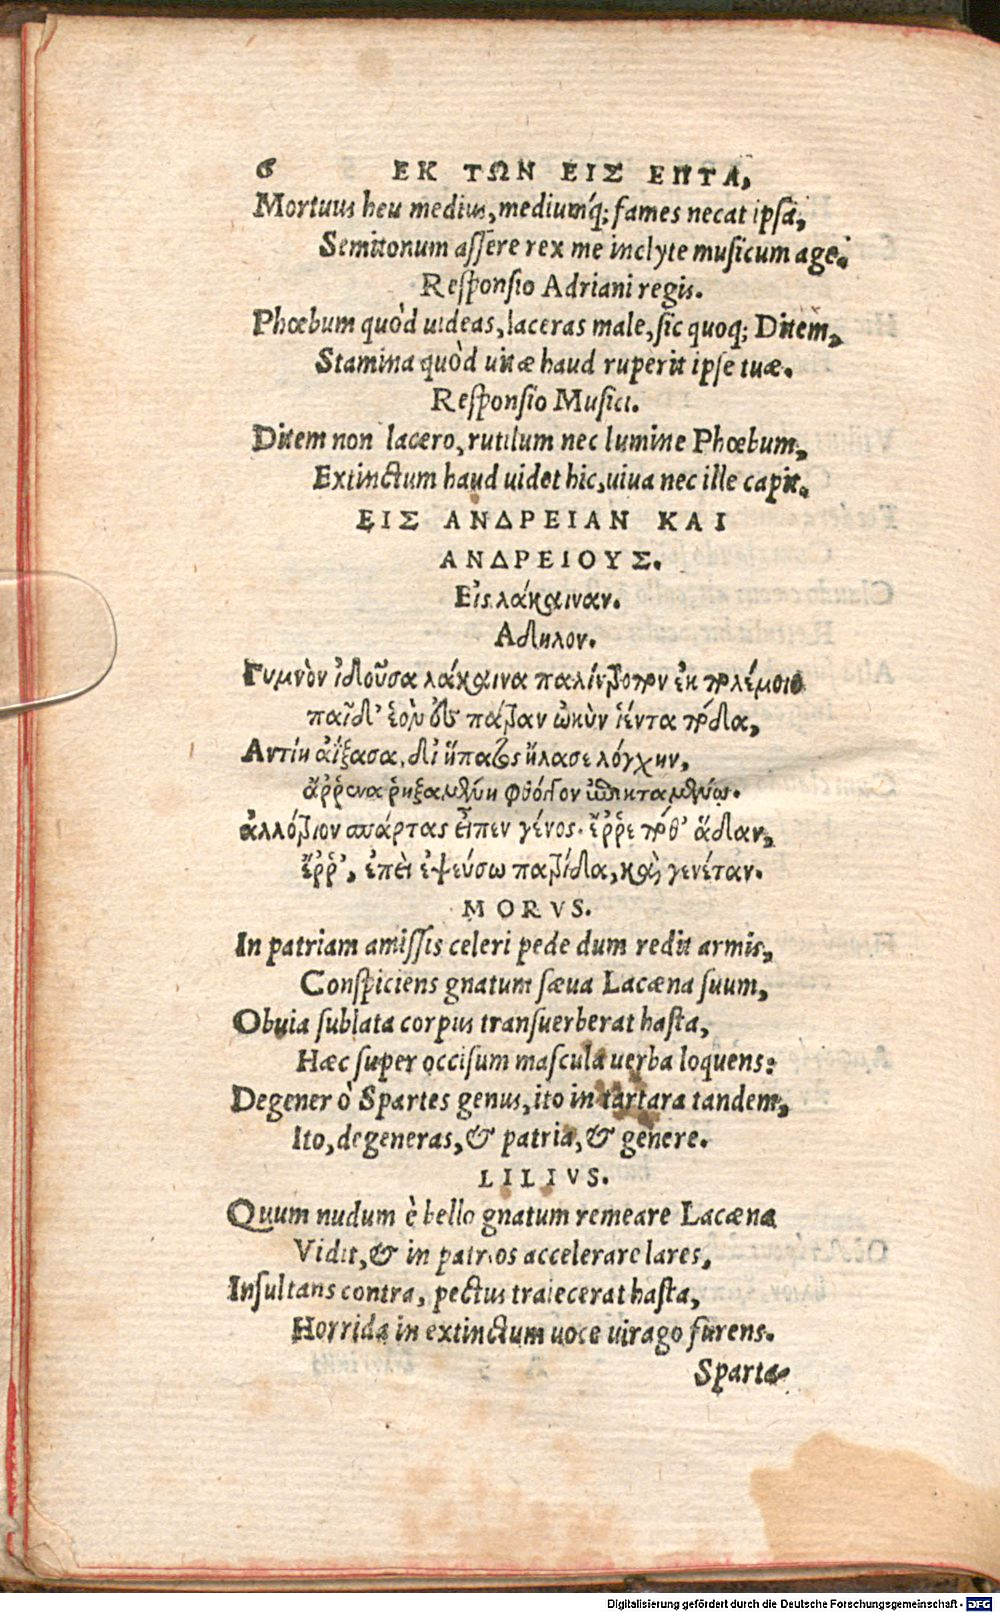 6 ΕΚ ΤΩΝ ΕΙΣ ΕΠΤΑ,
Mortuus heu medius, mediumq́; fames necat ipsa,
Semitonum assere rex me inclyte musicum age.
Responsio Adriani regis.
Phœbum quòd uideas, laceras male, sic quoq; Ditem,
Stamina quòd uitæ haud ruperit ipse tuæ.
Responsio Musici.
Ditem non lacero, rutilum nec lumine Phœbum,
Extinctum haud uidet hic, uiua nec ille capit.
ΕΙΣ ΑΝΔΡΕΙΑΝ ΚΑΙ
ΑΝΔΡΕΙΟΥΣ.
Εἰς λάκαιναν.
Αδηλον.
Γυμνὸν ἰδοῦσα λάκαινα παλίντροπον ἐκ πολέμοιο
παῖδ' ἑὸν εἰς πάτραν ὠκὺν ἱέντα πόδα,
Αντίη ἀΐξασα, δι' ἥπατος ἤλασε λόγχην,
ἄῤῥενα ῥηξαμένη φθόγγον ἐπὶ κταμένῳ.
ἀλλότριον σπάρτας εἶπεν γένος. ἔῤῥε ποθ' ἄδαν,
ἔῤῥ', ἐπεὶ ἐψεύσω πατρίδα, καὶ γενέταν.
MORVS.
In patriam amissis celeri pede dum redit armis,
Conspiciens gnatum sæua Lacæna suum,
Obuia sublata corpus transuerberat hasta,
Hæc super occisum mascula uerba loquens:
Degener ò Spartes genus, ito in tartara tandem,
Ito, degeneras, & patria, & genere.
LILIVS.
Quum nudum è bello gnatum remeare Lacæna
Vidit, & in patrios accelerare lares,
Insultans contra, pectus traiecerat hasta,
Horrida in extinctum uoce uirago furens.
Sparta
Digitalisierung gefördert durch die Deutsche Forschungsgemeinschaft - DFG